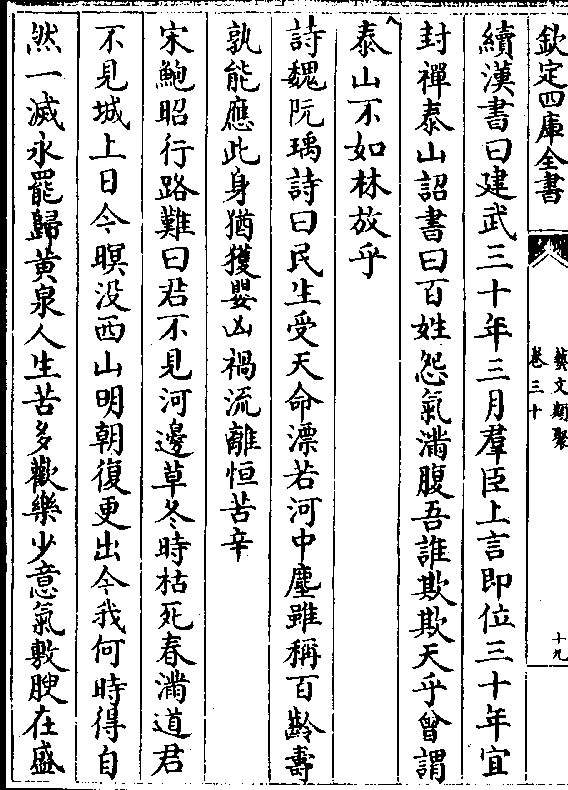 欽定四庫全書
藝文類聚
卷三十
十九
續漢書曰建武三十年三月羣臣上言即位三十年宜
封禪泰山詔書曰百姓怨氣滿腹吾誰欺欺天乎曾謂
泰山不如林放乎
詩魏阮瑀詩曰民生受天命漂若河中塵雖稱百齡壽
孰能應此身猶獲嬰凶禍流離恒苦辛
宋鮑昭行路難曰君不見河邊草冬時枯死春滿道君
不見城上日今暝没西山明朝復更出今我何時得自
然一滅永罷歸黄泉人生苦多歡樂少意氣敷腴在盛